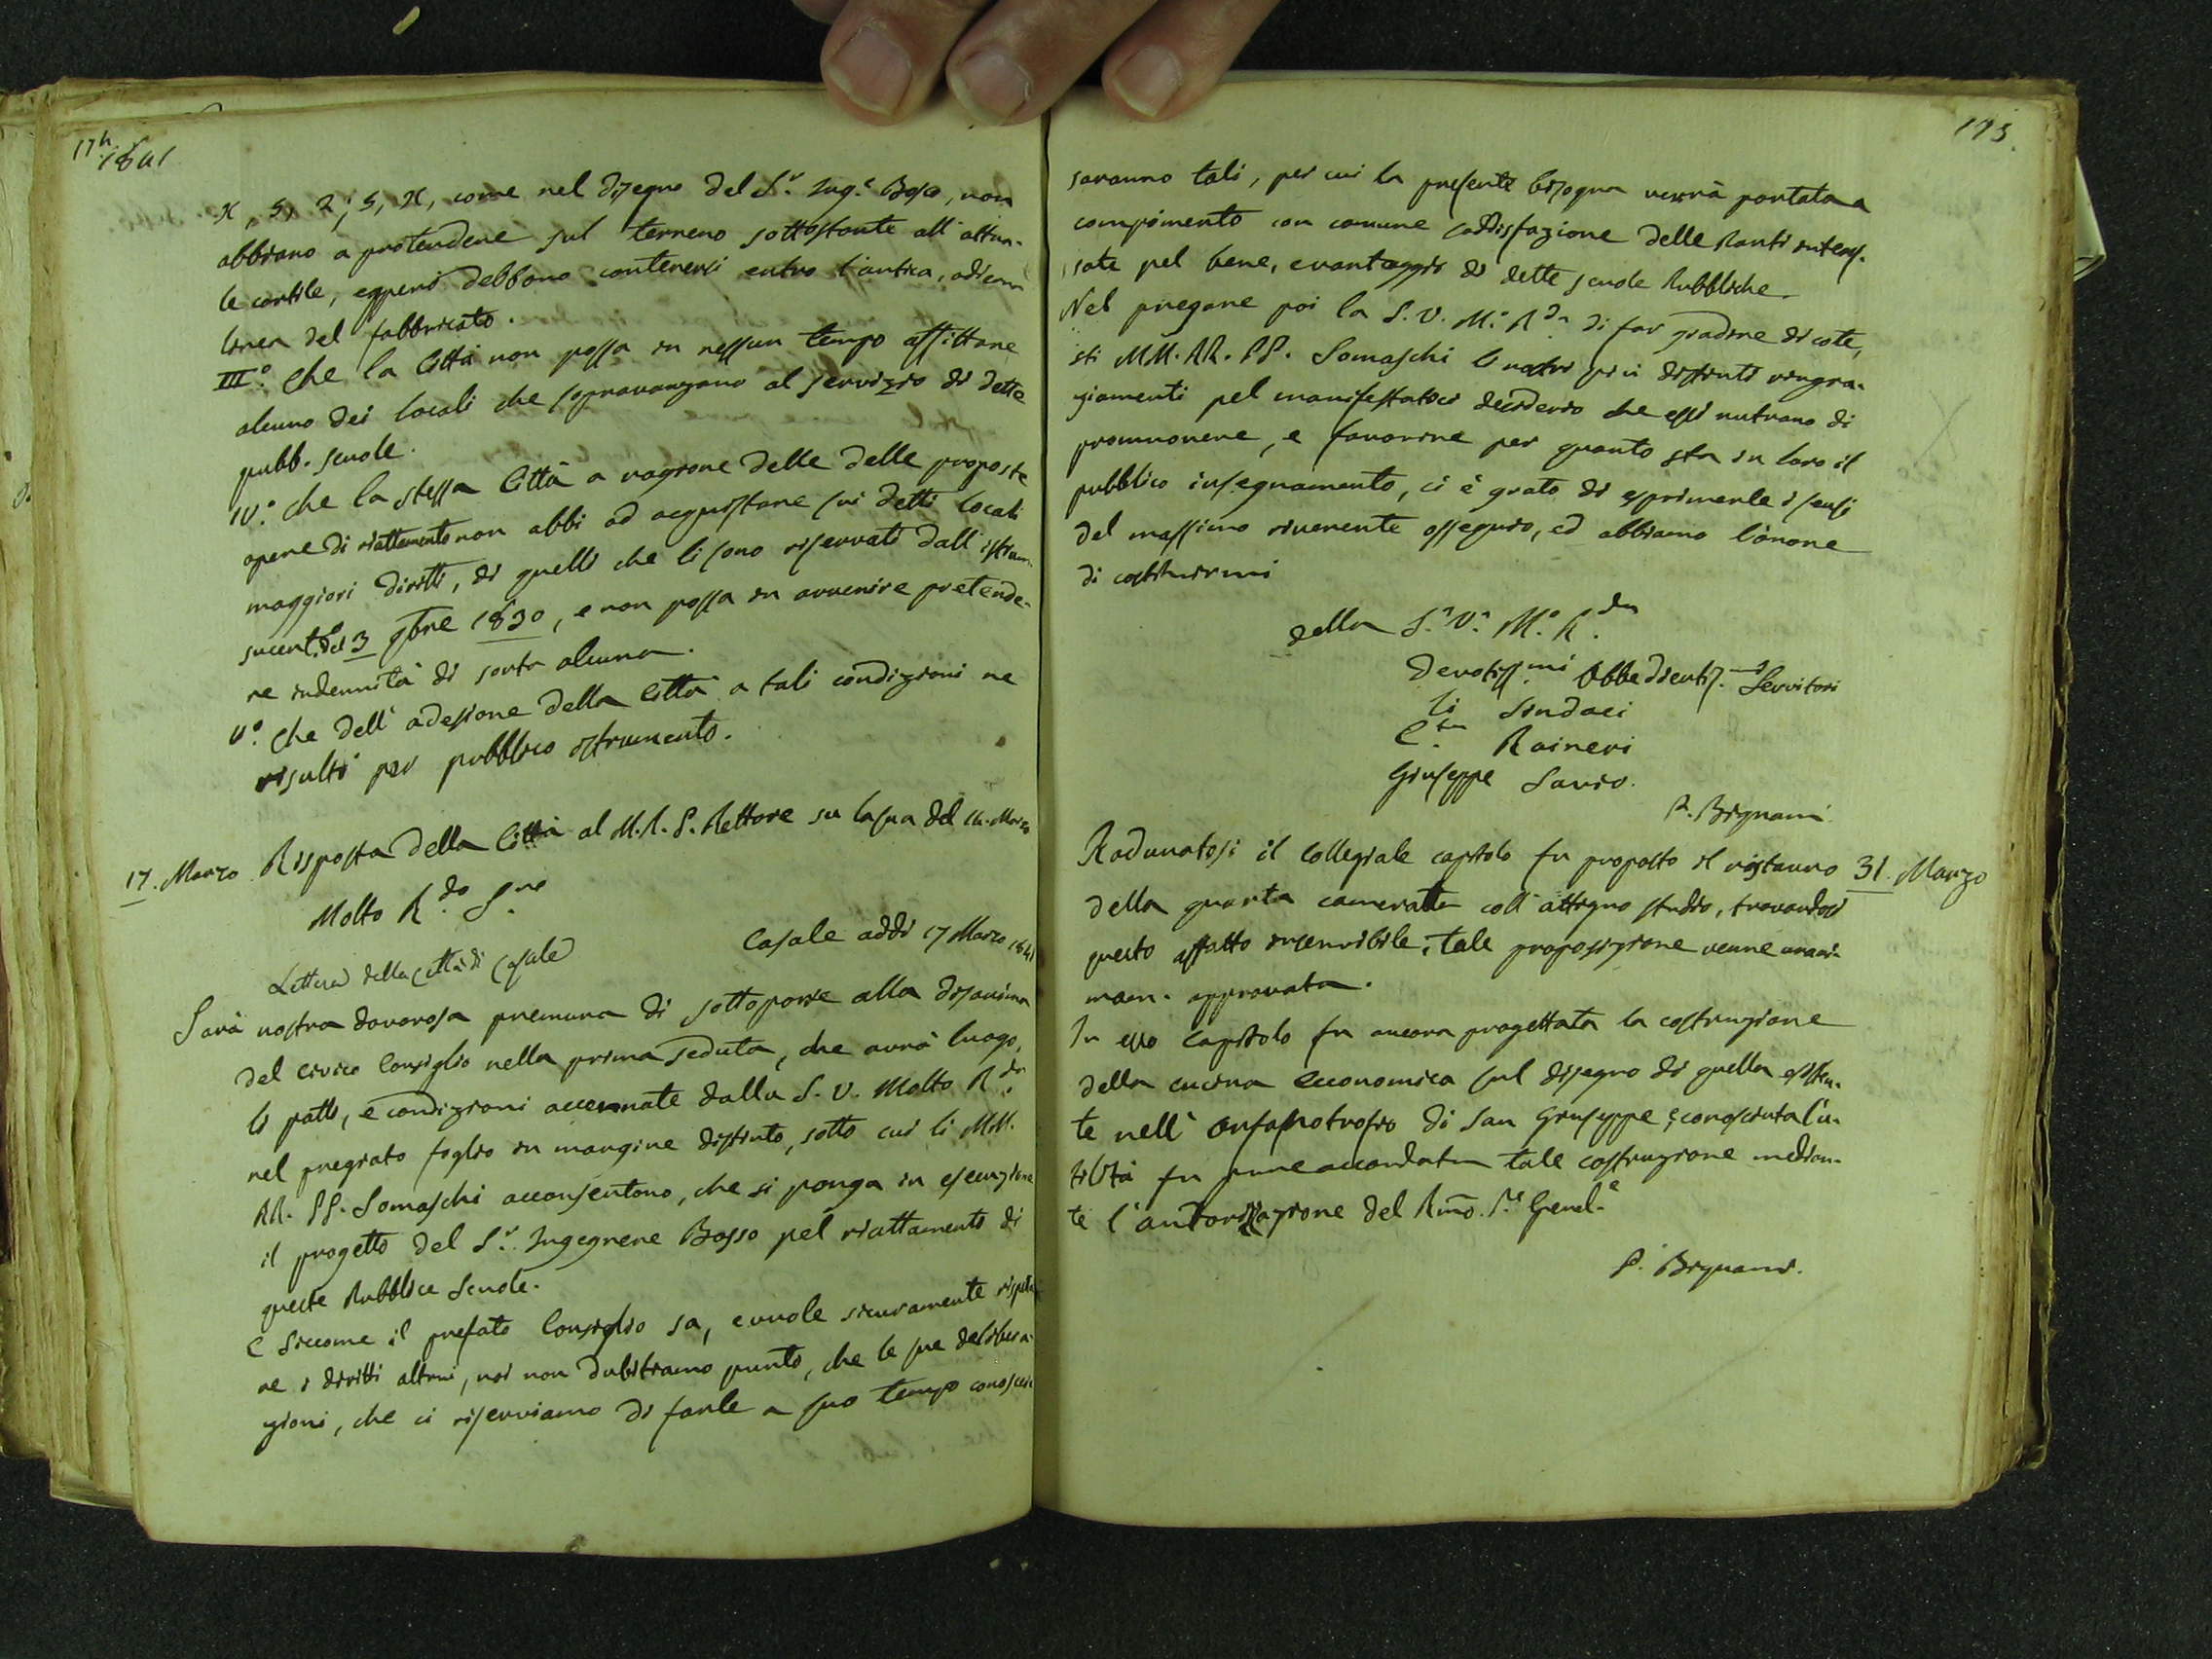 174
1841
X, S, Z, S, X, come nel disegno del S.r Ing.e Bosso, non
abbiano a protendere sul terreno sottostante all'attua-
le cortile, epperò debbono contenersi entro l'antica, odierna
linea del fabbricato.
III.° Che la Città non possa in nessun tempo affittare
alcuno dei locali che sopravanzano al servizio di dette
pubb. scuole.
IV.° Che la stessa Città a ragione delle delle proposte
opere di riattamento non abbi ad acquistare sui detti locali
maggiori diritti, di quelli che li sono riservati dall'istrum.
del 3 9bre 1830, e non possa in avvenire pretende-
re indennità di sorta alcuna.
V.° Che dell'adesione della Città a tali condizioni ne
risulti per pubblico istrumento.
17. Marzo Risposta della Città al M. R. P. Rettore su la sua del 14. Marzo
Molto R.do P.re
Lettera della Città di Casale
Casale addi 17 Marzo 1841
Sarà nostra doverosa premura di sottoporre alla disamina
del civico Consiglio nella prima seduta, che avrà luogo,
li patti, e condizioni accennate dalla S. V. Molto R.da
nel pregiato foglio in margine distinto, sotto cui li MM.
RR. PP. Somaschi acconsentono, che si ponga in esecuzione
il progetto del S.r Ingegnere Bosso pel riattamento di
queste Pubblice Scuole.
E siccome il prefato Consiglio sa, e vuole sicuramente rispetta-
re i diritti altrui, noi non dubitiamo punto, che le sue delibera-
zioni, che ci riserviamo di farle a suo tempo conoscere
175.
saranno tali, per cui la presente bisogna verrà portata a
compimento con comune soddisfazione delle Parti interes-
sate pel bene, e vantaggio di dette scuole Pubbliche.
Nel pregare poi la S. V. M.° R.da di far gradire di cote,
sti MM. RR. PP. Somaschi li nostri più distinti ringra-
ziamenti pel manifestatoci desiderio che essi nutrano di
promuovere, e favorire per quanto sta in loro il
pubblico insegnamento, ci è grato di esprimerle i sensi
del massimo riverente ossequio, ed abbiamo l'onore
di costituirmi
della S.a V.a M.° R.da
Devotiss.mi Obbedientis.mi Servitori
Li Sindaci
Raineri
Giuseppe Savio.
P. Bignami
Radunatosi il Collegiale capitolo fu proposto il ristauro 31. Marzo
della quarta camerata coll'attiguo studio, trovandosi
questo affatto inservibile; tale proposizione venne unani-
mam. approvata.
In esso Capitolo fu ancora progettata la costruzione
della cucina economica sul disegno di quella esisten-
te nell'Orfanotrofio di San Giuseppe; e conosciuta l'u-
tilità fu pure accordata tale costruzione median-
te l'autorizzazione del Rmo. P.e Genel.e
P. Bignami.